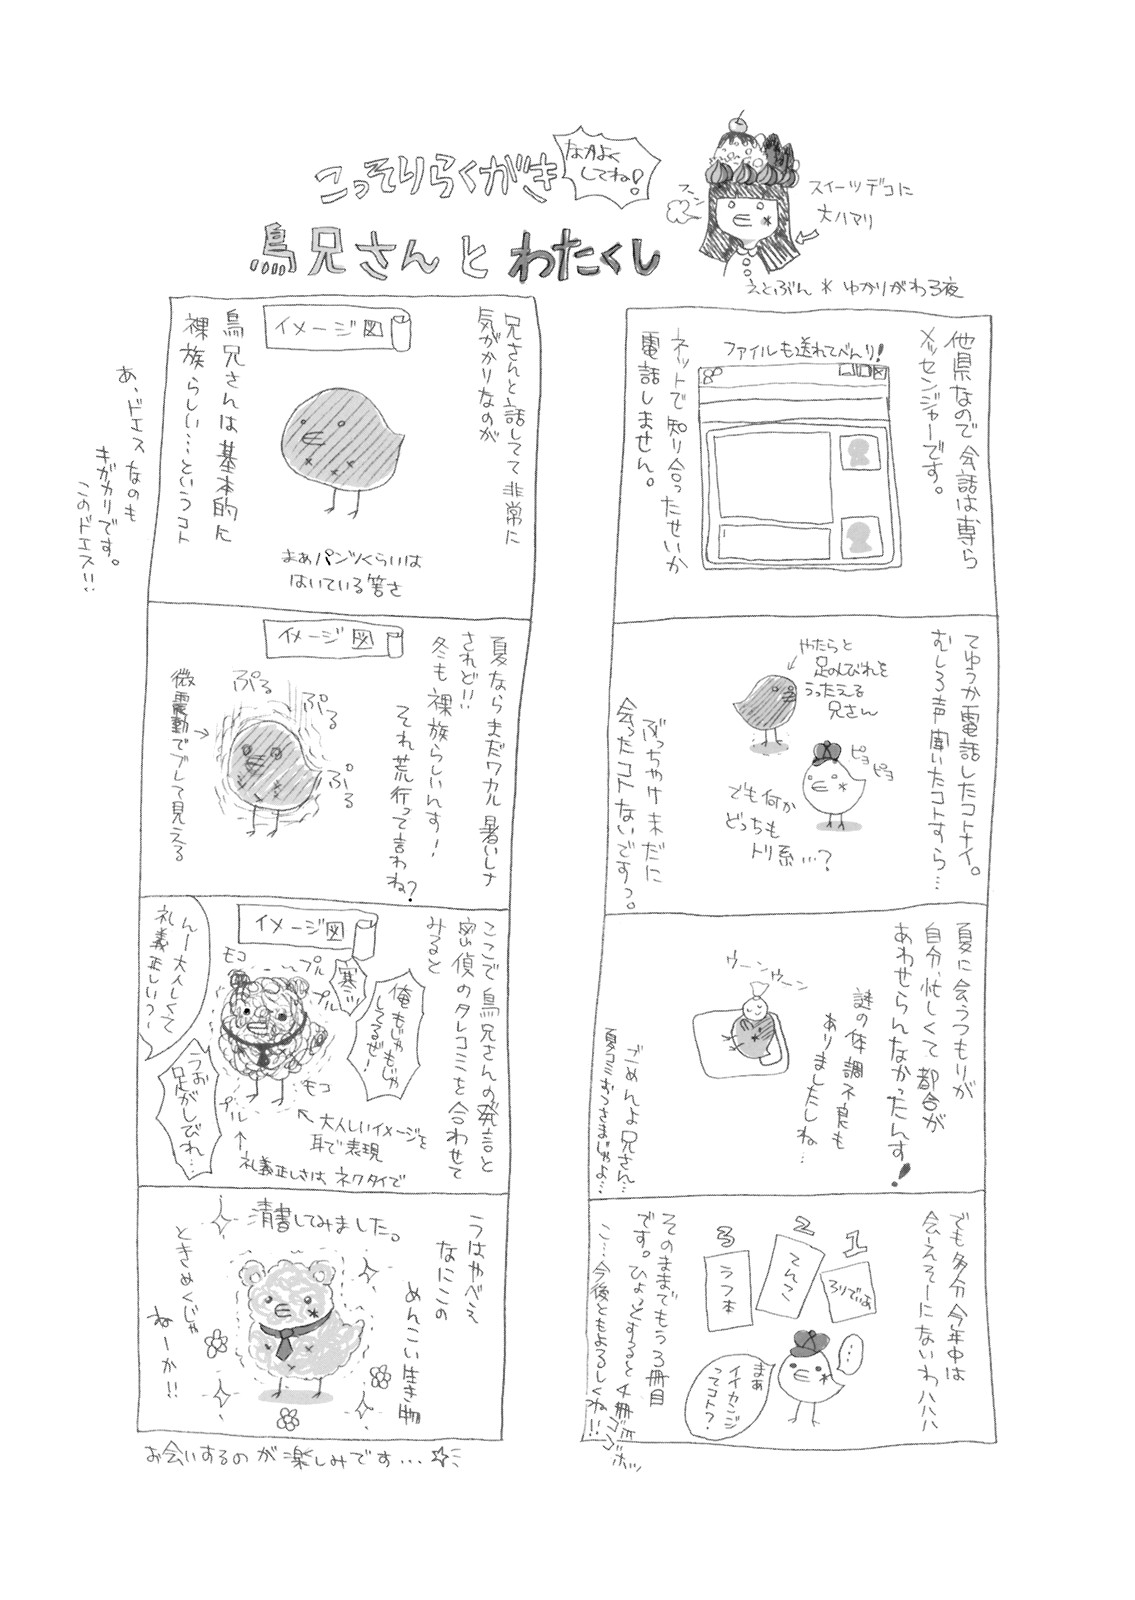 こっそりらくがき
なかよく
してね!
鳥兄さんとわたくし
フーン
スイーツデコに
大ハマリ
えとぶん*ゆかりがわる夜
他県なので会話は専ら
メッセンジャーです。
ファイルも送れてべんり!
ネットで知り合ったせいか
電話しません。
てゆうか電話したコトナイ。
むしろ声聞いたコトすら…
やたらと
足のしびれを
うったえる
兄さん
ピヨ
ピヨ
でも何か
どっちも
トリ系…?
ぶっちゃけ未だに
会ったコトないですっ。
夏に会うつもりが
自分、忙しくて都合が
あわせらんなかったんす!
謎の体調不良も
ありましたしね…
ウーンウーン
ごめんよ兄さん…
夏コミおつさまじゃよ…
でも多分今年中は
会ーえそーにないわハハハ
1
2
3
ろりでぃよ
てんごく
うつ本
…
まぁ
イイカンジ
ってコト?
そのままでもう3冊目
です。ひょっとすると4冊
ゴニョゴニョ
こ…今後ともよろしくね!!
兄さんと話してて非常に
気がかりなのが
イメージ図
鳥兄さんは基本的に
裸族らしい…というコト
まぁパンツくらいは
はいている筈さ
あ、ドエスなのも
キガカリです。
このドエス!!
夏ならまだワカル暑いしさ
されど!!
冬も裸族らしいんす!
それ荒行って言わね?
イメージ図
ぷる
ぷる
ぷる
微震動でブレて見える
ここで鳥兄さんの発言と
密偵のタレコミを合わせて
みると
イメージ図
俺もじゃもじゃ
してるぜ!
寒い
モコ
プル
プル
んー大人しくて
礼義正しい?
うお
足がしびれ…
モコ
プル
大人しいイメージを
耳で表現
礼義正しさは、ネクタイで
うはやべえ
なにこの
めんこい生き物
清書してみました。
ときめくじゃ
ねーか!!
お会いするのが楽しみです…☆